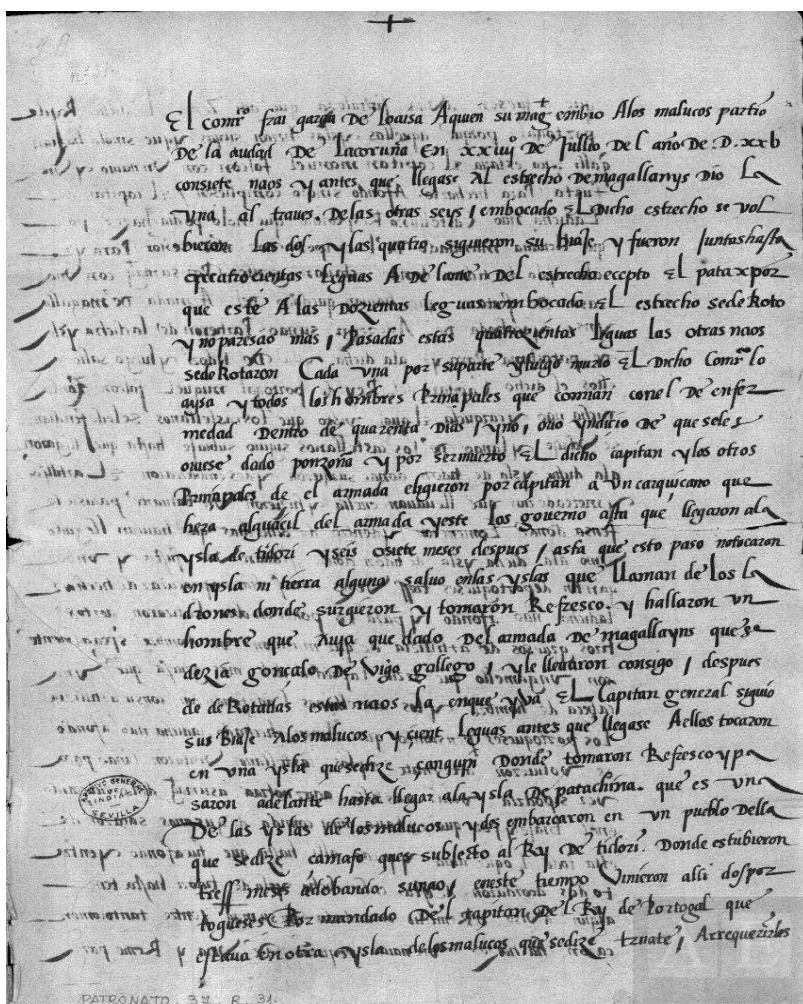 El comor frai garcia De loaisa Aquien su mag embio Alos malucos partio
De la ciudad De Lacoruña En xxiiijo De Jullio Del año De . D . xxb
consiete naos y antes que llegase Al estrecho De magallanys Dio la
vna al traues. De las otras seys / embocado El Dicho estrecho se vol
bieron Las dos y las quatro siguieron su biaje y fueron Juntas hasta
quatrocientas leguas A De lante Del estrecho ecepto El patax por
que este A las Dozientas leguas embocado El estrecho sedeRoto
y no paresçio mas / Pasadas estas quatrozientas leguas las otras naos
sedeRotaron Cada vna por suparte y luego murio El Dicho Comor lo
aysa y todos los hombres Prinçipales que comian conel De enfer
medad Dentro de quarenta Dias / yno / ovo yndicio De que seles
oviese dado ponzoña y por sermuerto El dicho capitan y los otros
Prinçipales de el armada eligieron por capitan a vn carquicano que
hera alguaçil del armada y este los governo asta que llegaron ala
ysla de tidori y seis osiete meses despues / asta que esto paso notocaron
en ysla ni tierra alguna saluo enlas yslas que llaman de los la
drones donde surgieron y tomaron Refresco . y hallaron vn
hombre que Auia que dado Del armada De magallayns que se
dezia gonçalo De vigo gallego / y le llebaron consigo / despues
de deRotadas estas naos la enque yva El Capitan general siguio
sus Biaje Alos malucos y çient leguas antes que llegase Aellos tocaron
en vna ysla que sedize Donde tomaron Refresco y pa
saron adelante hasta llegar ala ysla De patachina . que es vna
De las yslas de los malucos y des embarcaron en vn pueblo Della
que sedize camafo ques subjecto al Rey De tidori . Donde estubieron
tress meses adobando sunao / eneste tiempo vinieron alli dos por
togueses Por mandado Del capitan Del Rey de Portogal que
estava En otra ysla delos malucos que sedize trnate / Arrequerirles
ARCHIVO GENERAL
DE INDIAS
SEVILLA
PATRONATO , 37 , R. 31